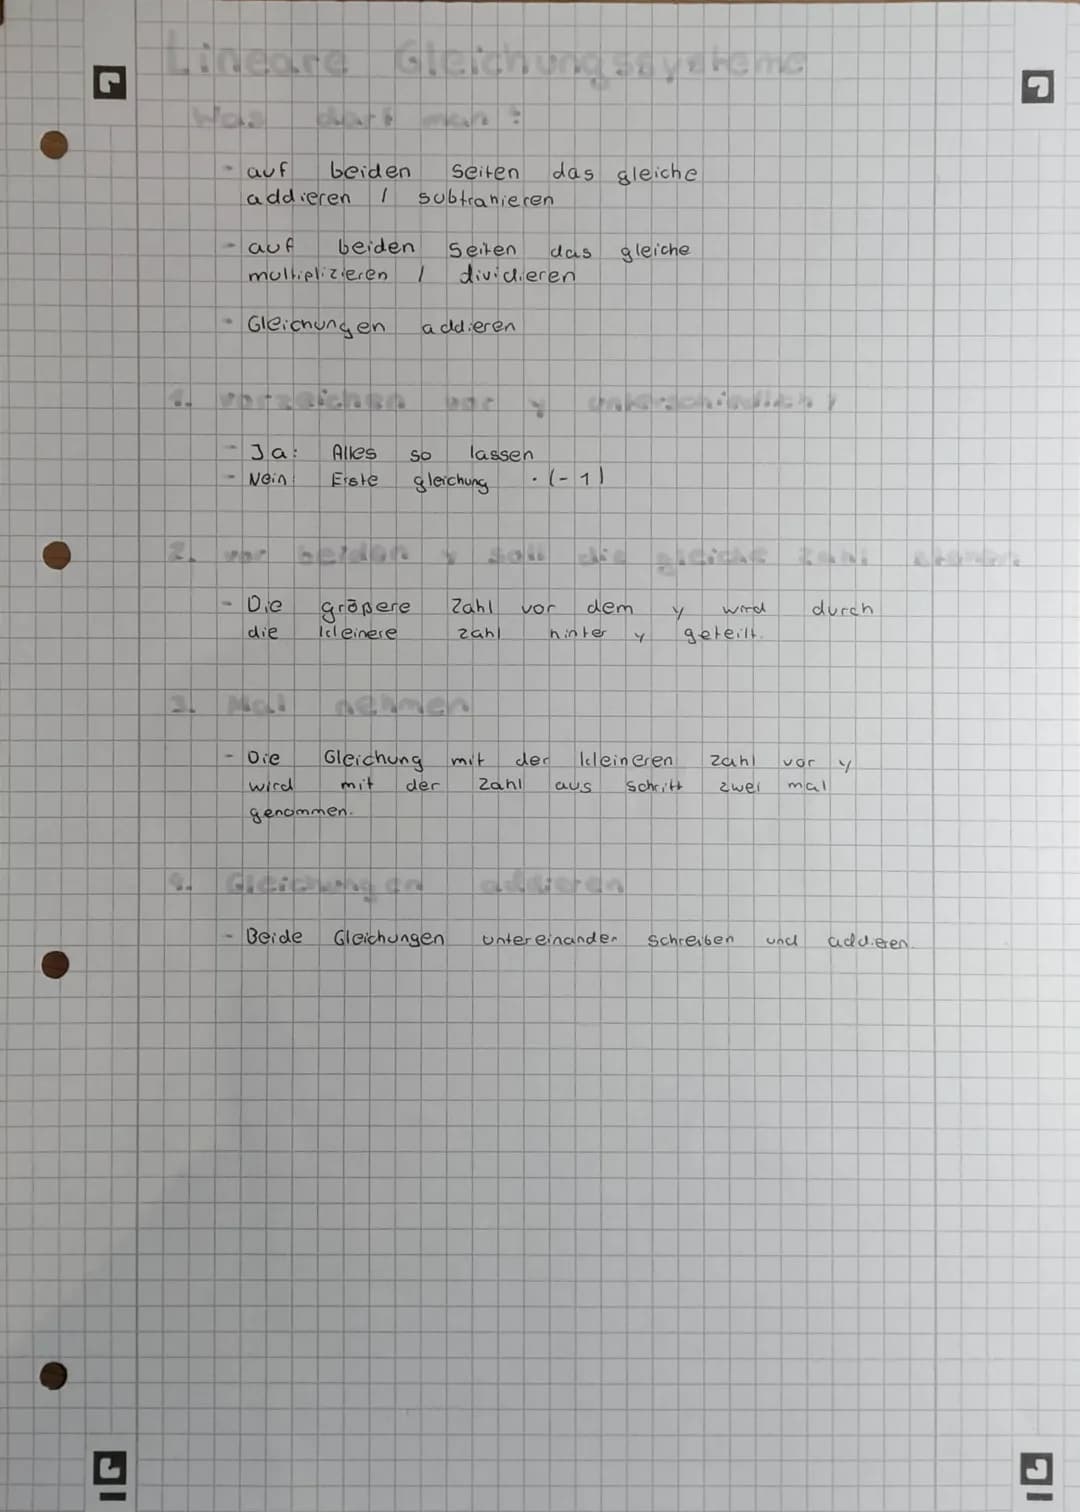 Lineare Gleichungssysteme
Was darf man?
- auf beiden Seiten das gleiche
addieren / subtrahieren
- auf beiden Seiten das gleiche
multiplizieren / dividieren
- Gleichungen addieren
1. Vorzeichen vor y
- Ja: Alles so lassen
- Nein: Erste gleichung · (-1)
2. vor beiden y soll die gleiche Zahl stehen.
- Die größere Zahl vor dem y wird durch
die kleinere zahl hinter y geteilt.
3. Mal nehmen
- Die Gleichung mit der kleineren Zahl vor y
wird mit der Zahl aus Schritt zwei mal
genommen.
4. Gleichungen addieren
- Beide Gleichungen untereinander schreiben und addieren.